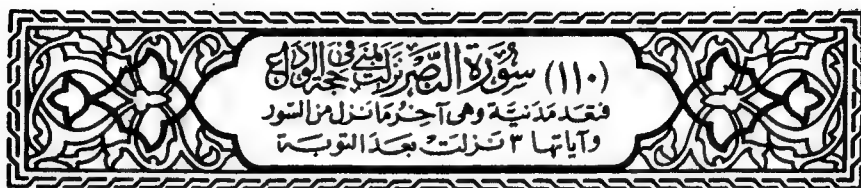 (١١٠) سُورَةُ النَّصْرِ نَزَلَتْ بِمِنًى فِى حَجَّةِ الْوَدَاعِ
فتعد مدنية وهى آخر ما نزل من السور
وآياتها ٣ نزلت بعد التوبة